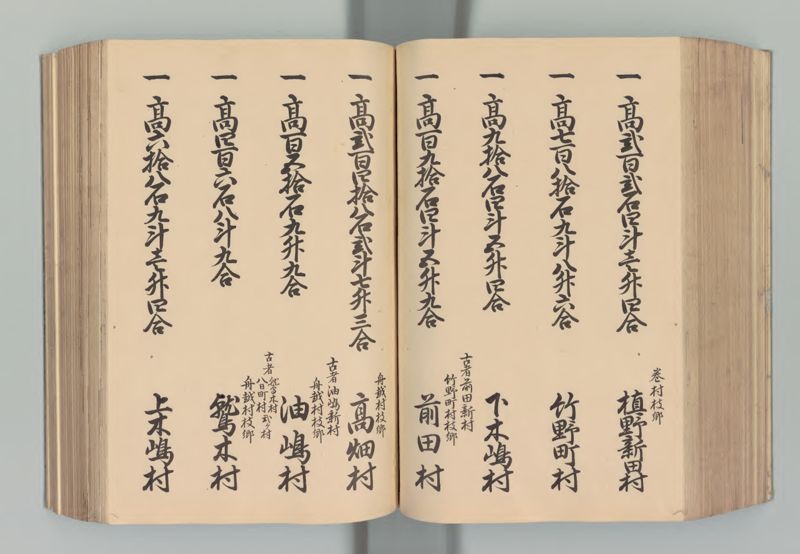 巻村枝郷
一 高弐百弐石四斗壱升四合 植野新田村
一 高七百八拾石九斗八升六合 竹野町村
一 高九拾八石四斗五升四合 下木嶋村
古者前田新村
竹野町村枝郷
一 高百九拾石四斗五升九合 前田村
舟越村枝郷
一 高弐百四拾八石弐斗七升三合 高畑村
古者油嶋新村
舟越村枝郷
一 高百五拾石九升九合 油嶋村
古者
鷲之木村
八日町村 弐ケ村
舟越村枝郷
一 高四百六石八斗九合 鷲木村
一 高六拾八石九斗壱升四合 上木嶋村